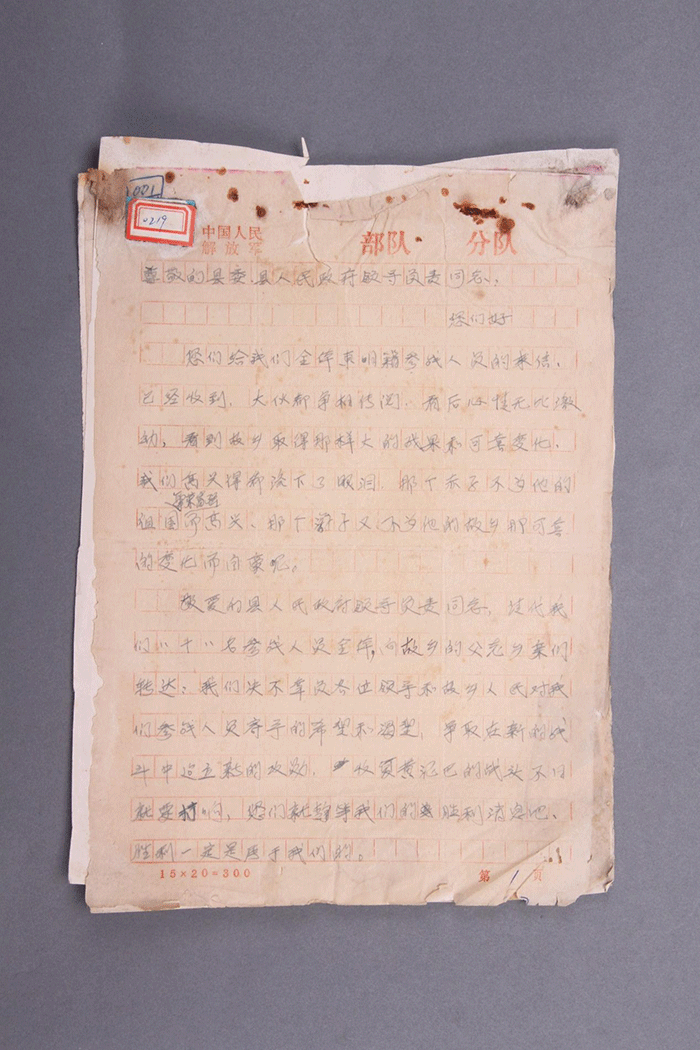 001
0219
中国人民
解放军 部队 分队
尊敬的县委、县人民政府领导负责同志、
您们好
您们给我们全体东明籍参战人员的来信、
已经收到，大伙都争相传阅，看后心情无比激
动，看到故乡取得那样大的成果和可喜变化、
我们高兴得都流下了眼泪，那个赤子不为他的
祖国 而高兴、那个游子又不为他的故乡那可喜
的变化而自豪呢。
敬爱的县人民政府领导负责同志，
们"十八"名参战人员全体，向故乡的父老乡亲们
转达：我们决不辜负各位领导和故乡人民对我
们参战人员寄予的希望和渴望，争取在新的战
斗中 立新的功勋， 收复 的战斗不日
就要打响，您们就 等我们的胜利消息吧、
胜利一定是属于我们的。
15×20=300 第 1 页